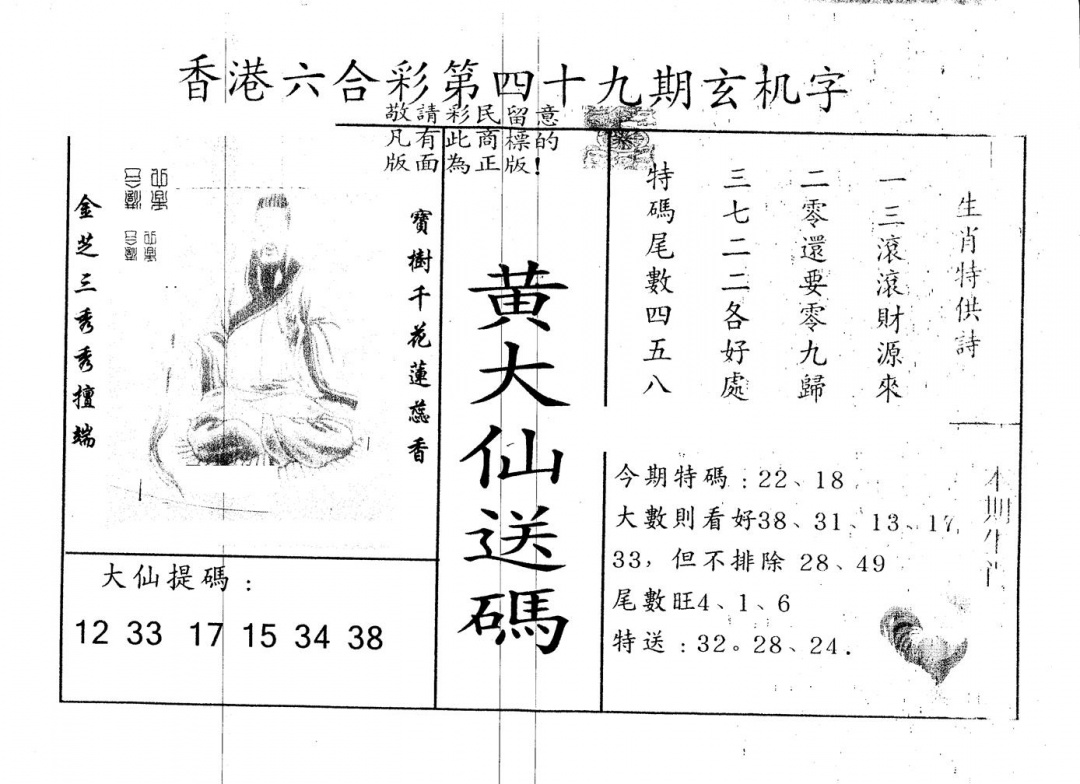 香港六合彩第四十九期玄机字
敬請彩民留意
凡有此商標的
版面為正版！
生肖特供詩
一三滾滾財源來
二零還要零九歸
三七二二各好處
特碼尾數四五八
黄大仙送碼
寶樹千花蓮蕊香
金芝三秀秀擅端
大仙提碼：
12 33 17 15 34 38
今期特碼：22、18
大數則看好38、31、13、17、
33，但不排除 28、49
尾數旺4、1、6
特送：32。28、24.
本期生肖